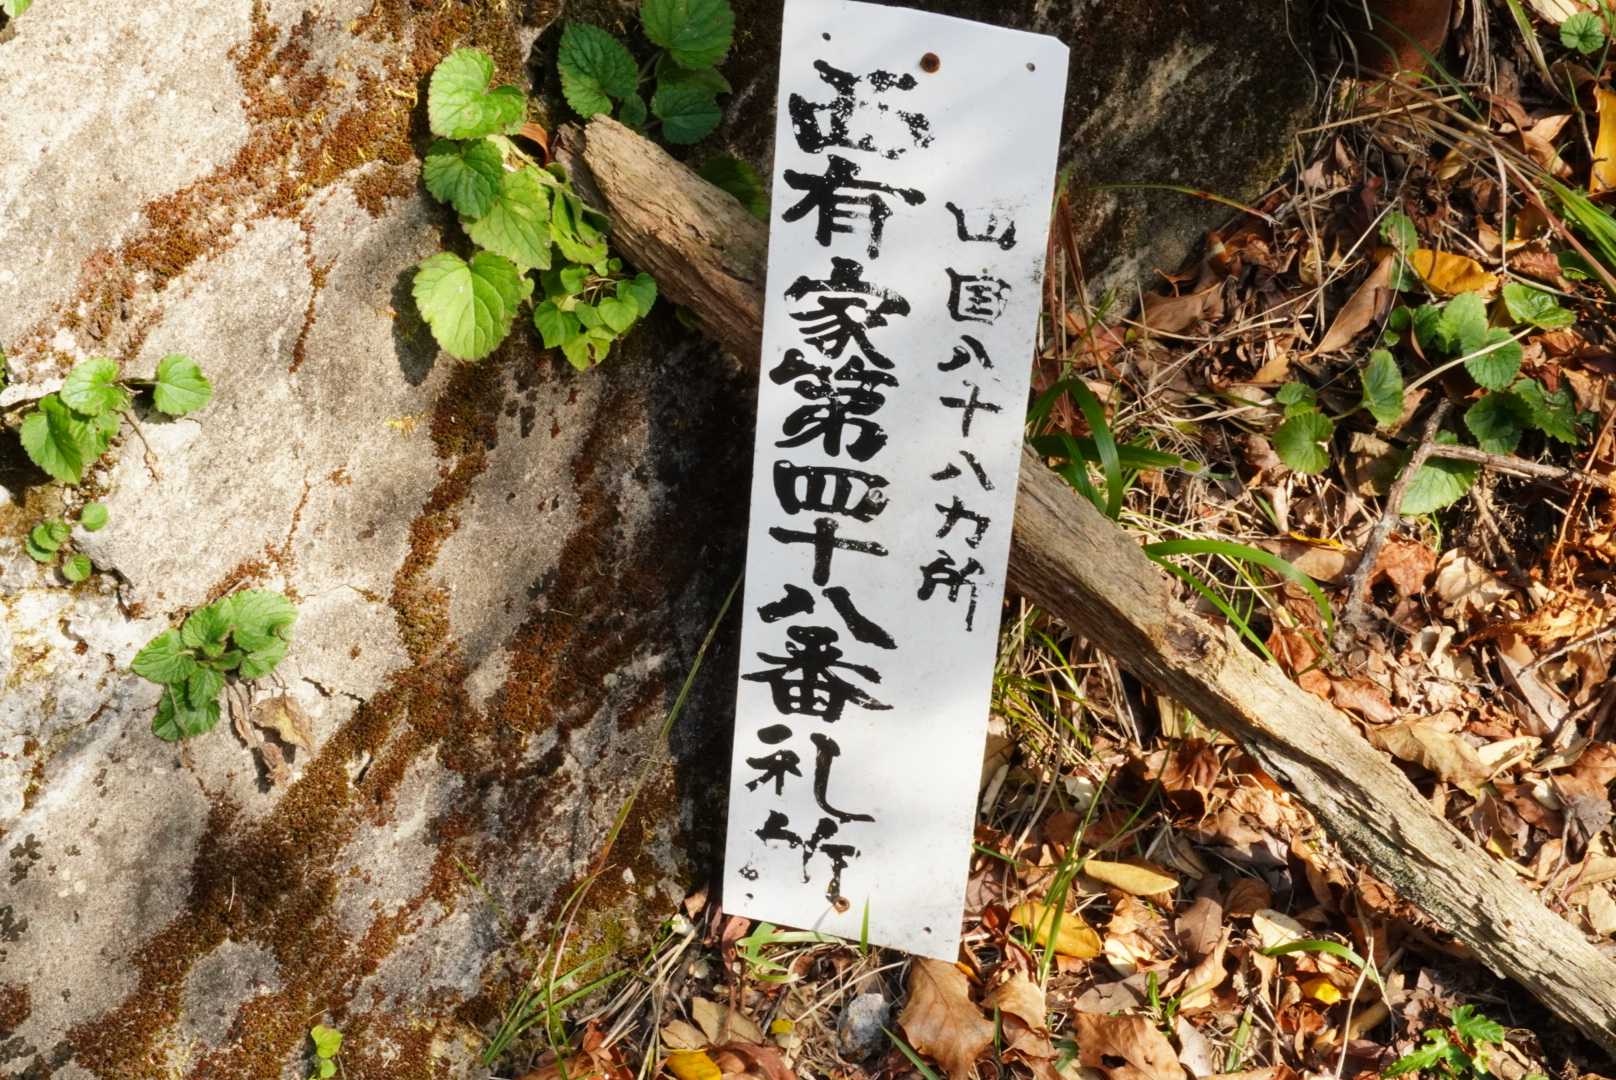 四国八十八カ所
西有家第四十八番札所